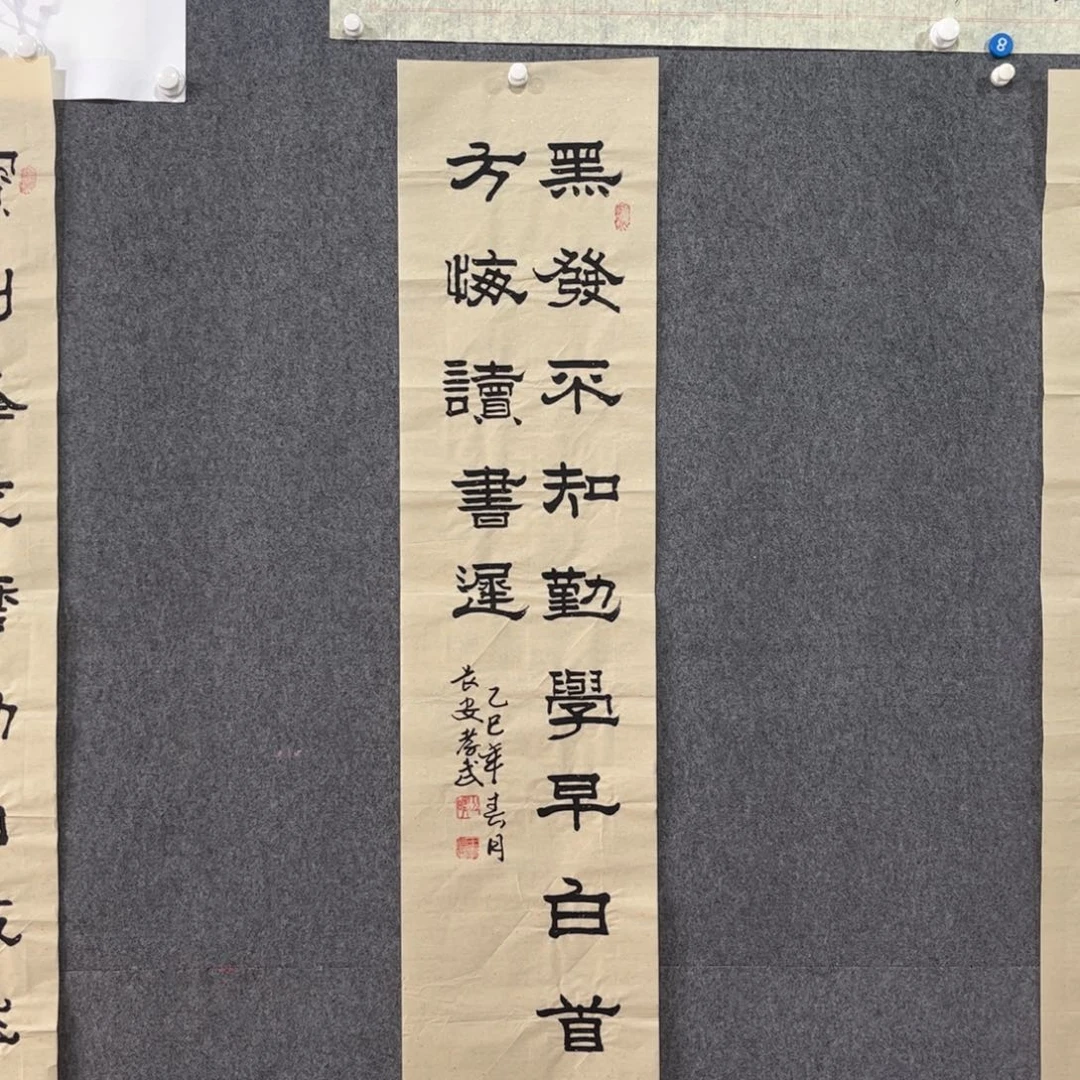 黑發不知勤學早白首
方悔讀書遲
乙巳年春月
長安孝武
8